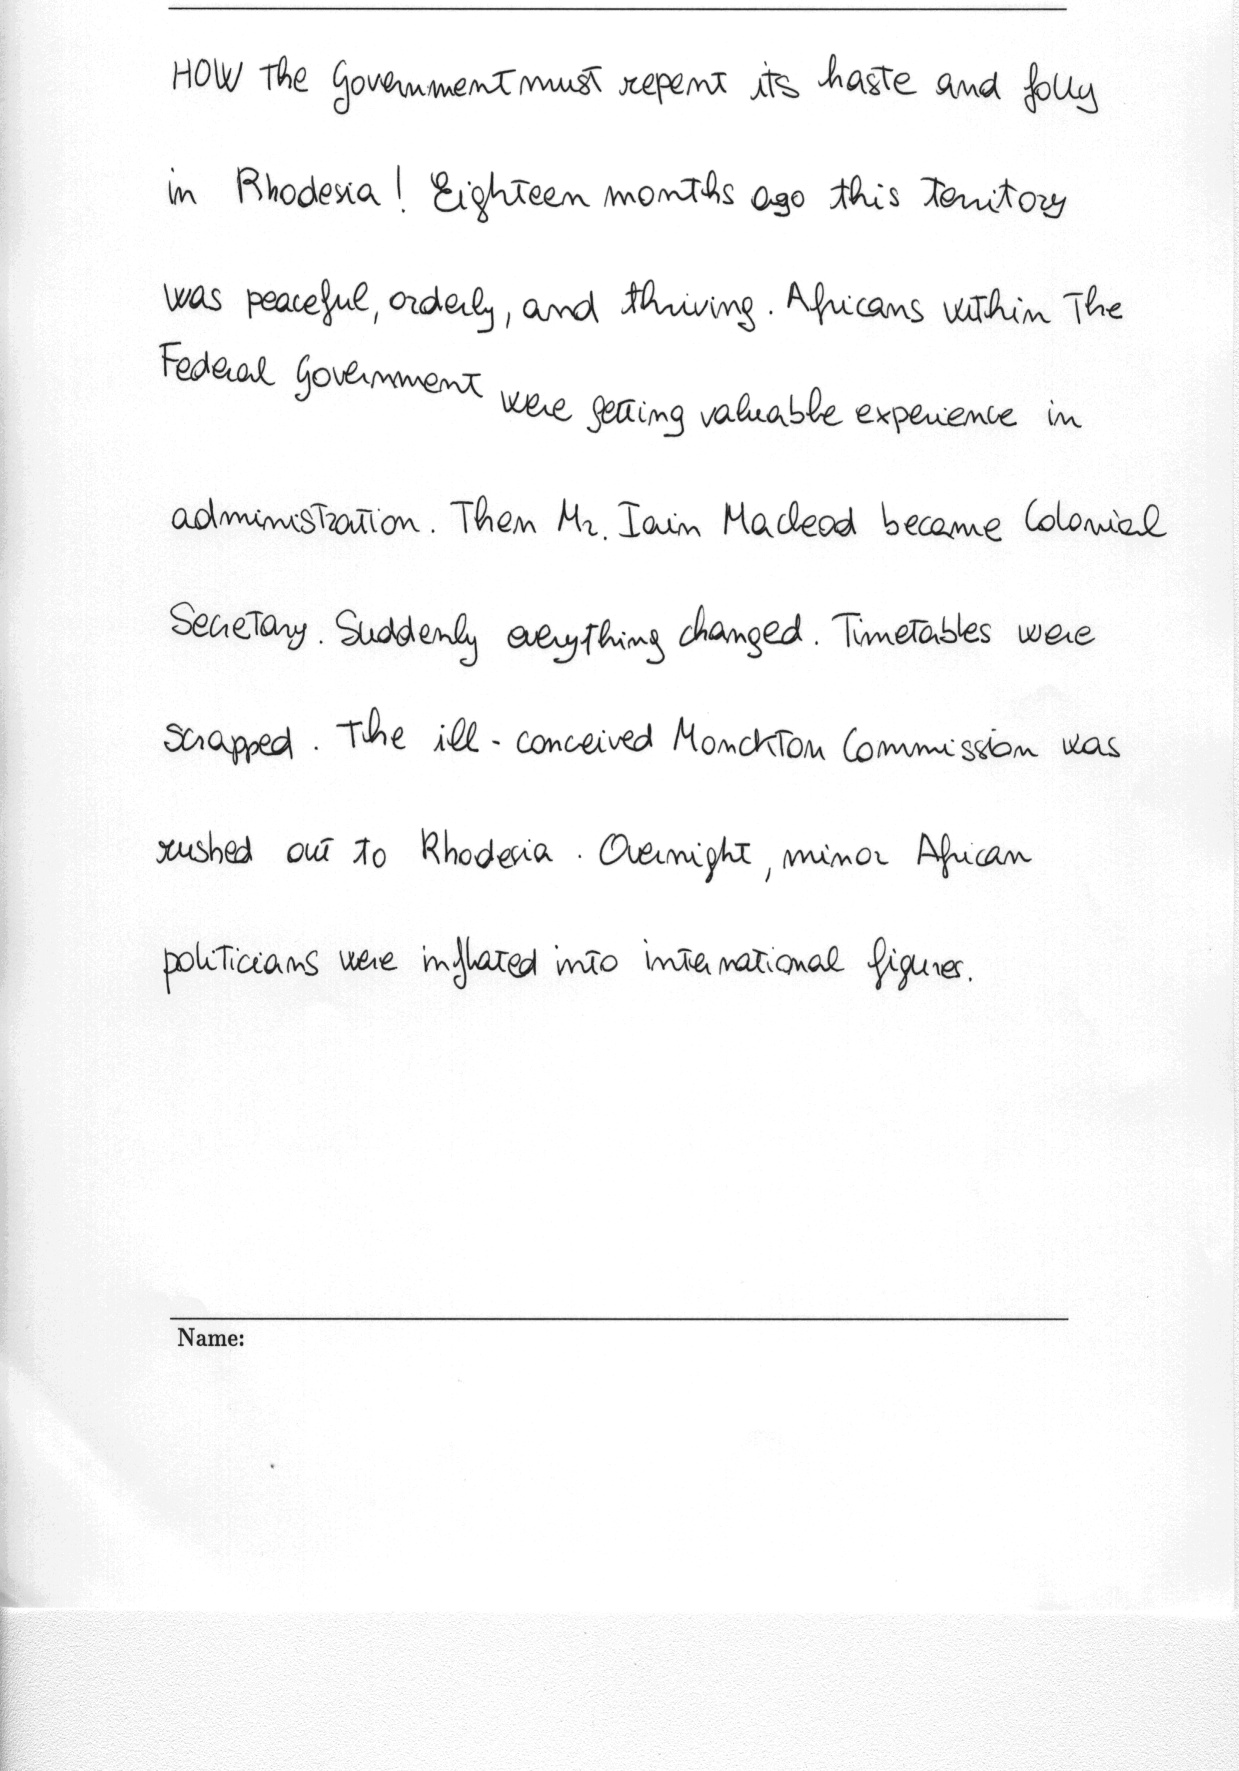 HOW the Government must repent its haste and folly
in Rhodesia! Eighteen months ago this territory
was peaceful, orderly, and thriving. Africans within the
Federal Government were getting valuable experience in
administration. Then Mr. Iain Macleod became Colonial
Secretary. Suddenly everything changed. Timetables were
scrapped. The ill-conceived Monckton Commission was
rushed out to Rhodesia. Overnight, minor African
politicians were inflated into international figures.
Name: